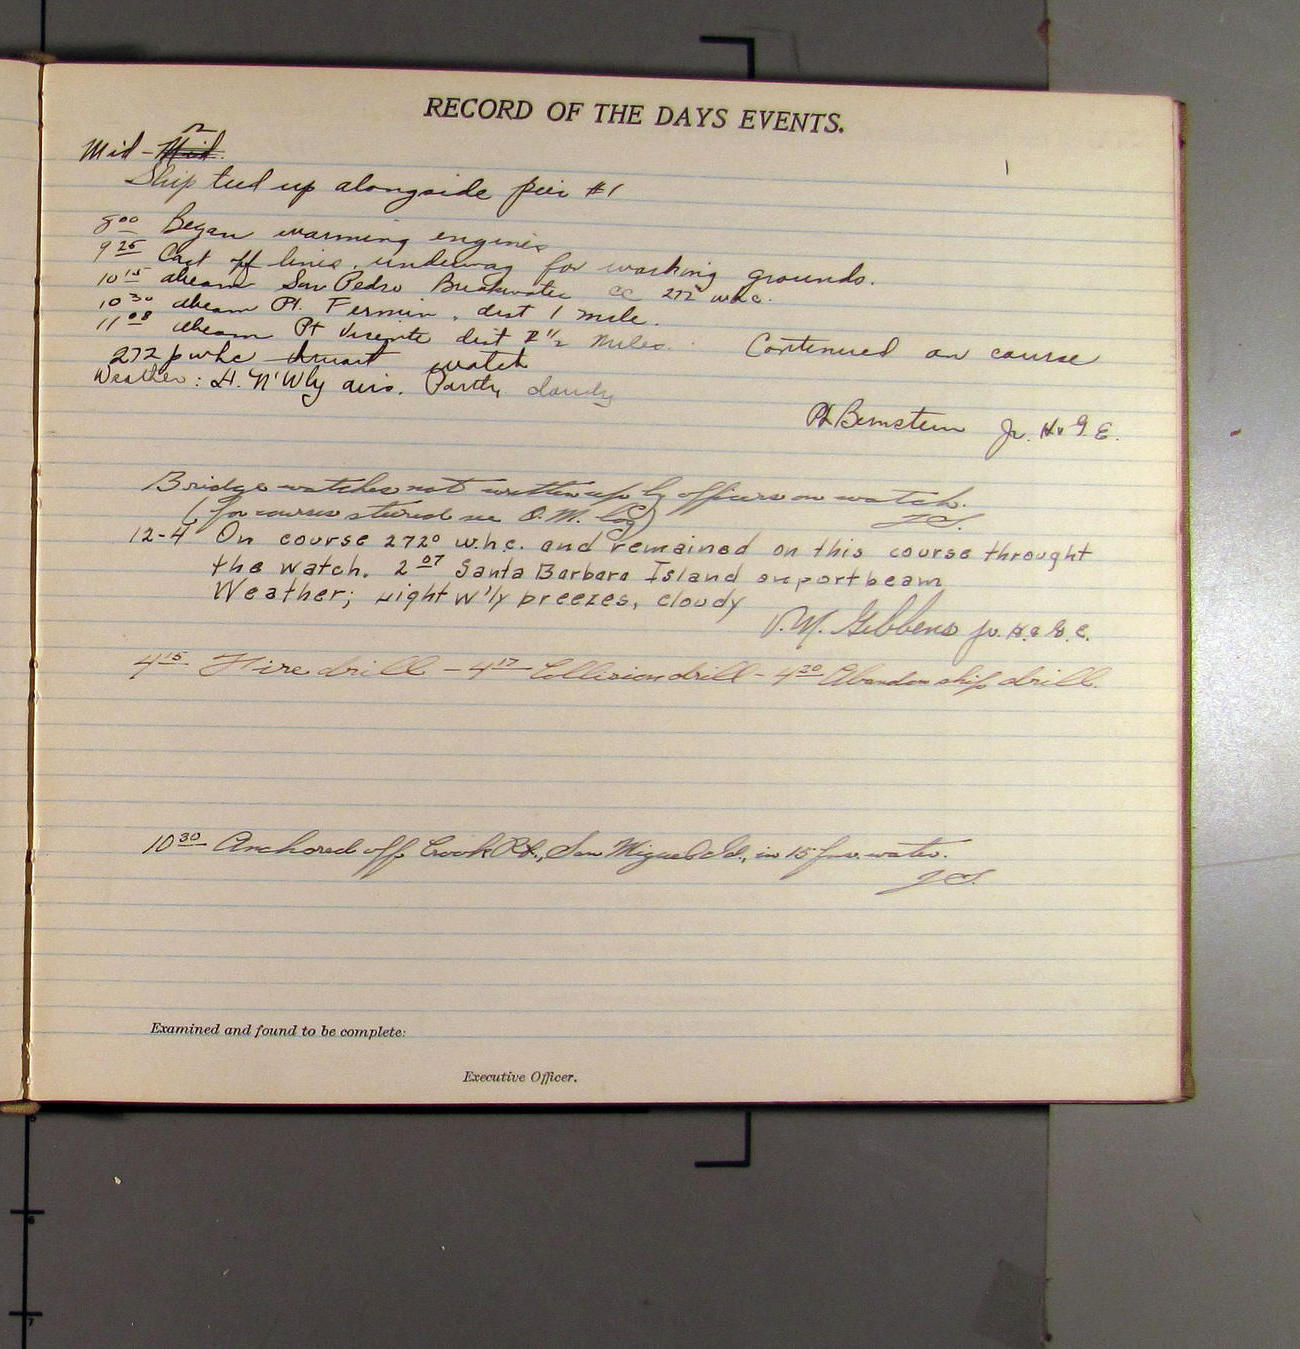 RECORD OF THE DAYS EVENTS.
Mid - Mid. 12
Ship tied up alongside pier #1
8 00 Began warming engines
9 25 Cast off lines, underway for working grounds.
10 15 abeam San Pedro Breakwater cc 272 whc.
10 30 abeam Pt. Fermin, dist 1 mile.
11 08 abeam Pt Vicente dist 2 1/2 miles. Continued on course
272 p whc thruout watch
Weather: Lt. N'Wly airs. Partly cloudy
Ph Bernstein Jr. H. & G. E.
Bridge watches not written up by officers on watch.
(for courses steered see Q.M. Log)
12-4 On course 272° w.h.c. and remained on this course throught
the watch. 2 07 Santa Barbara Island on port beam
Weather; Light W'ly breezes, cloudy
V.M. Gibbens Jr. H. & G. E.
4 15 Fire drill - 4 17 Collision drill - 4 20 Abandon ship drill.
10 30 Anchored off Crook Pt., San Miguel Id., in 15 fms. water.
Examined and found to be complete:
Executive Officer.